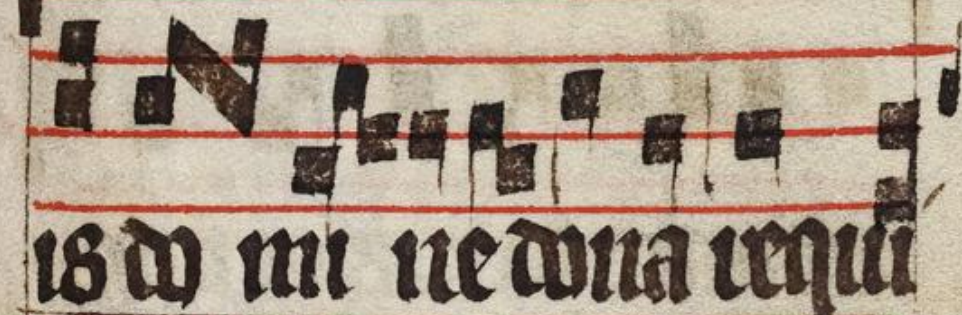 is do mi ne dona requi